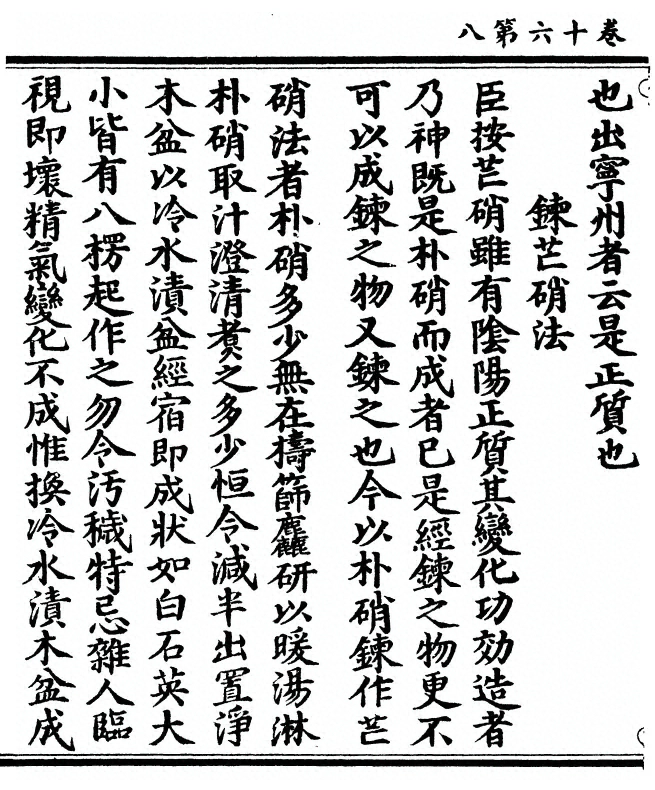 卷十六第八
也出寧州者云是正質也
鍊芒硝法
臣按芒硝雖有陰陽正質其變化功効造者
乃神既是朴硝而成者已是經鍊之物更不
可以成鍊之物又鍊之也今以朴硝鍊作芒
硝法者朴硝多少無在擣篩麤研以暖湯淋
朴硝取汁澄清煑之多少恒令減半出置淨
木盆以冷水漬盆經宿即成狀如白石英大
小皆有八楞起作之勿令汚穢特忌雜人臨
視即壞精氣變化不成惟換冷水漬木盆成